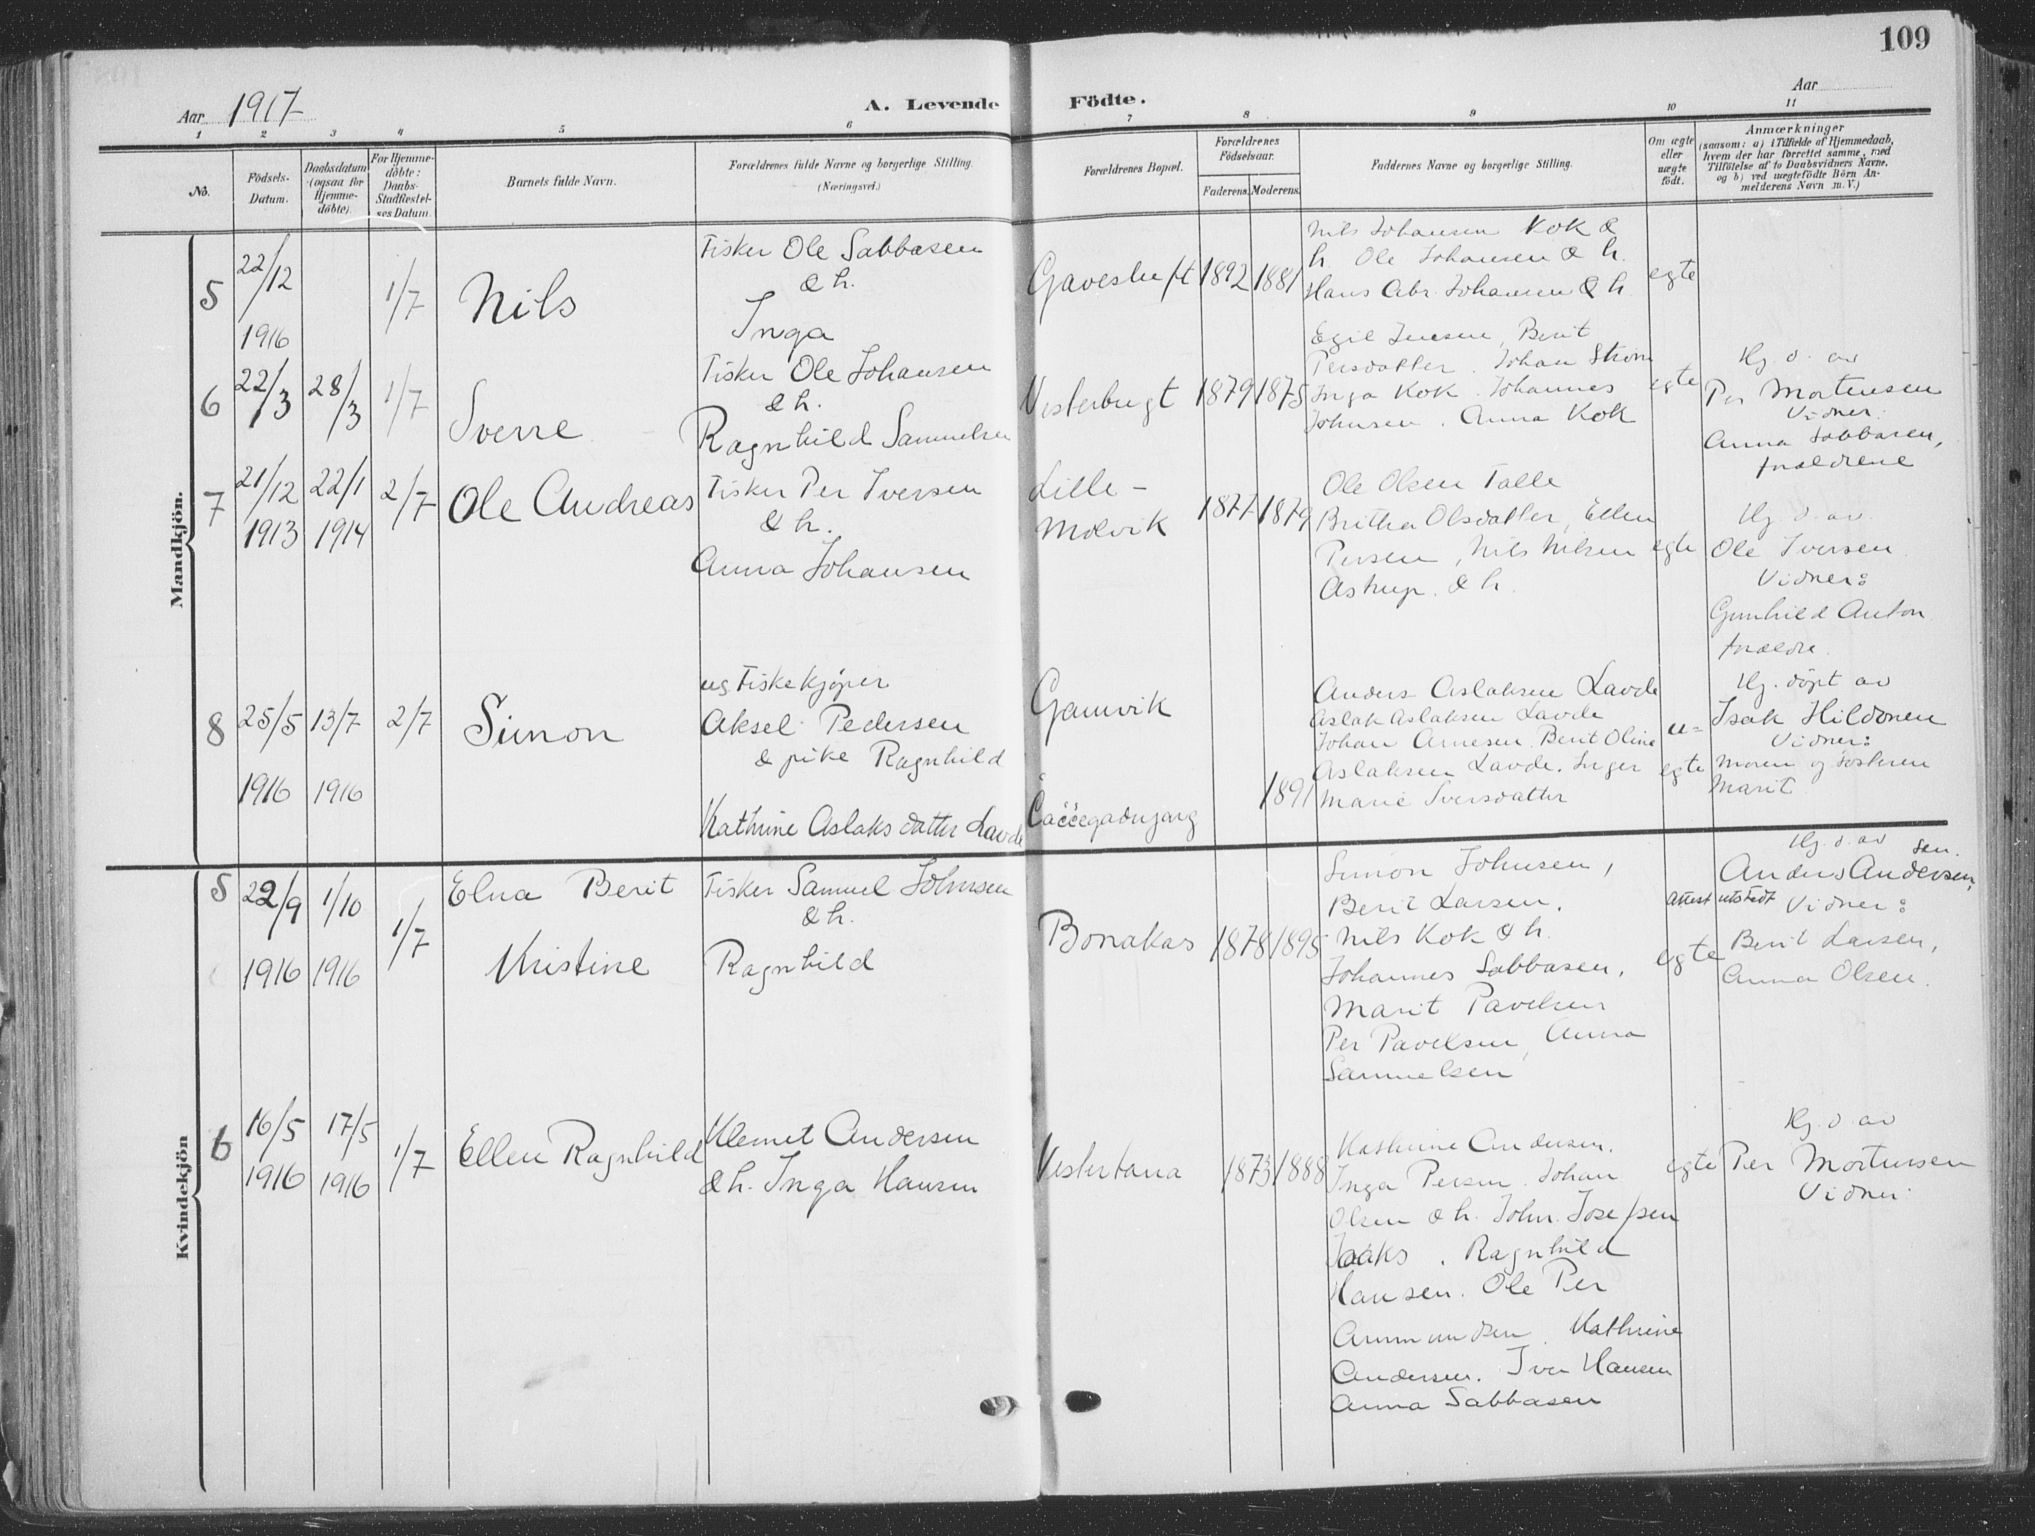 109
Aar 1917
A. Levende Födte.
Aar
1 2 3 4 5 6 7 8 9 10 11
No.
Födsels-Datum.
Daabsdatum (ogsaa for Hjemme-döbte).
For Hjemme-döbte: Daabs-Stadfæstel-ses Datum.
Barnets fulde Navn.
Forældrenes fulde Navne og borgerlige Stilling.
(Næringsvei.)
Forældrenes Bopæl.
Forældrenes Födselsaar.
Faderens. Moderens.
Faddernes Navne og borgerlige Stilling.
Om ægte eller uægte födt.
Anmærkninger
(saasom: a) i Tilfælde af Hjemmedaab,
hvem der har forrettet samme, med
Tilföielse af to Daabsvidners Navne,
og b) ved uægtefödte Börn An-
melderens Navn m. V.)
Mandkjön.
5
22/12
1916
1/7
Nils
Fisker Ole Sabbasen
& h.
Inga
1892 1881
Nils Johansen Kok &
h Ole Johansen & h.
Hans Abr. Johansen & h
egte
6
22/3
28/3
1/7
Sverre
Fisker Ole Johansen
& h.
Ragnhild Samuelsen
Vesterbugt
1879 1875
Egil Jensen, Berit
Persdatter. Johan Strøm
Inga Kok. Johannes
Johnsen. Anna Kok
egte
Hj. d. av
Per Mortensen
Vidner:
Anna Sabbasen,
forældrene
7
21/12
1913
22/1
1914
2/7
Ole Andreas
Fisker Per Iversen
& h.
Anna Johansen
Lille-
Molvik
1877 1879
Ole Olsen Talle
Britha Olsdatter, Ellen
Persen, Nils Nilsen
Astrup. & h.
egte
Hj. d. av
Ole Iversen.
Vidner:
Gunhild Anton
forældre.
8
25/5
1916
13/7
1916
2/7
Simon
ug Fiskekjøper
Aksel Pedersen
& pike Ragnhild
Kathrine Aslaksdatter Lavde
Gamvik
Čaččegadnjarg
1891
Anders Aslaksen Lavde
Aslak Aslaksen Lavde
Johan Arnesen. Berit Oline
Aslaksen Lavde. Inger
Marie Iversdatter
u=
egte
Hj. døpt av
Isak Hildonen
Vidner:
Moren og søsteren
Marit
Kvindekjön
5
22/9
1916
1/10
1916
1/7
Elna Berit
Kristine
Fisker Samuel Johnsen
& h.
Ragnhild
Bonakas
1878 1895
Simon Johnsen,
Berit Larsen.
Nils Kok & h.
Johannes Sabbasen,
Marit Pavelsen
Per Pavelsen, Anna
Samuelsen
attest utstedt
egte
Hj. d. av
sen.
Anders Andersen,
Vidner:
Berit Larsen,
Anna Olsen.
6
16/5
1916
17/5
1916
1/7
Ellen Ragnhild
Klemet Andersen
& h. Inga Hansen
Vestertana
1873 1888
Kathrine Andersen.
Inga Persen. Johan
Olsen & h. John. Josefsen
Ragnhild
Hansen. Ole Per
Ammundsen. Kathrine
Andersen. Iver Hansen
Anna Sabbasen
egte
Hj. d. av
Per Mortensen
Vidner: